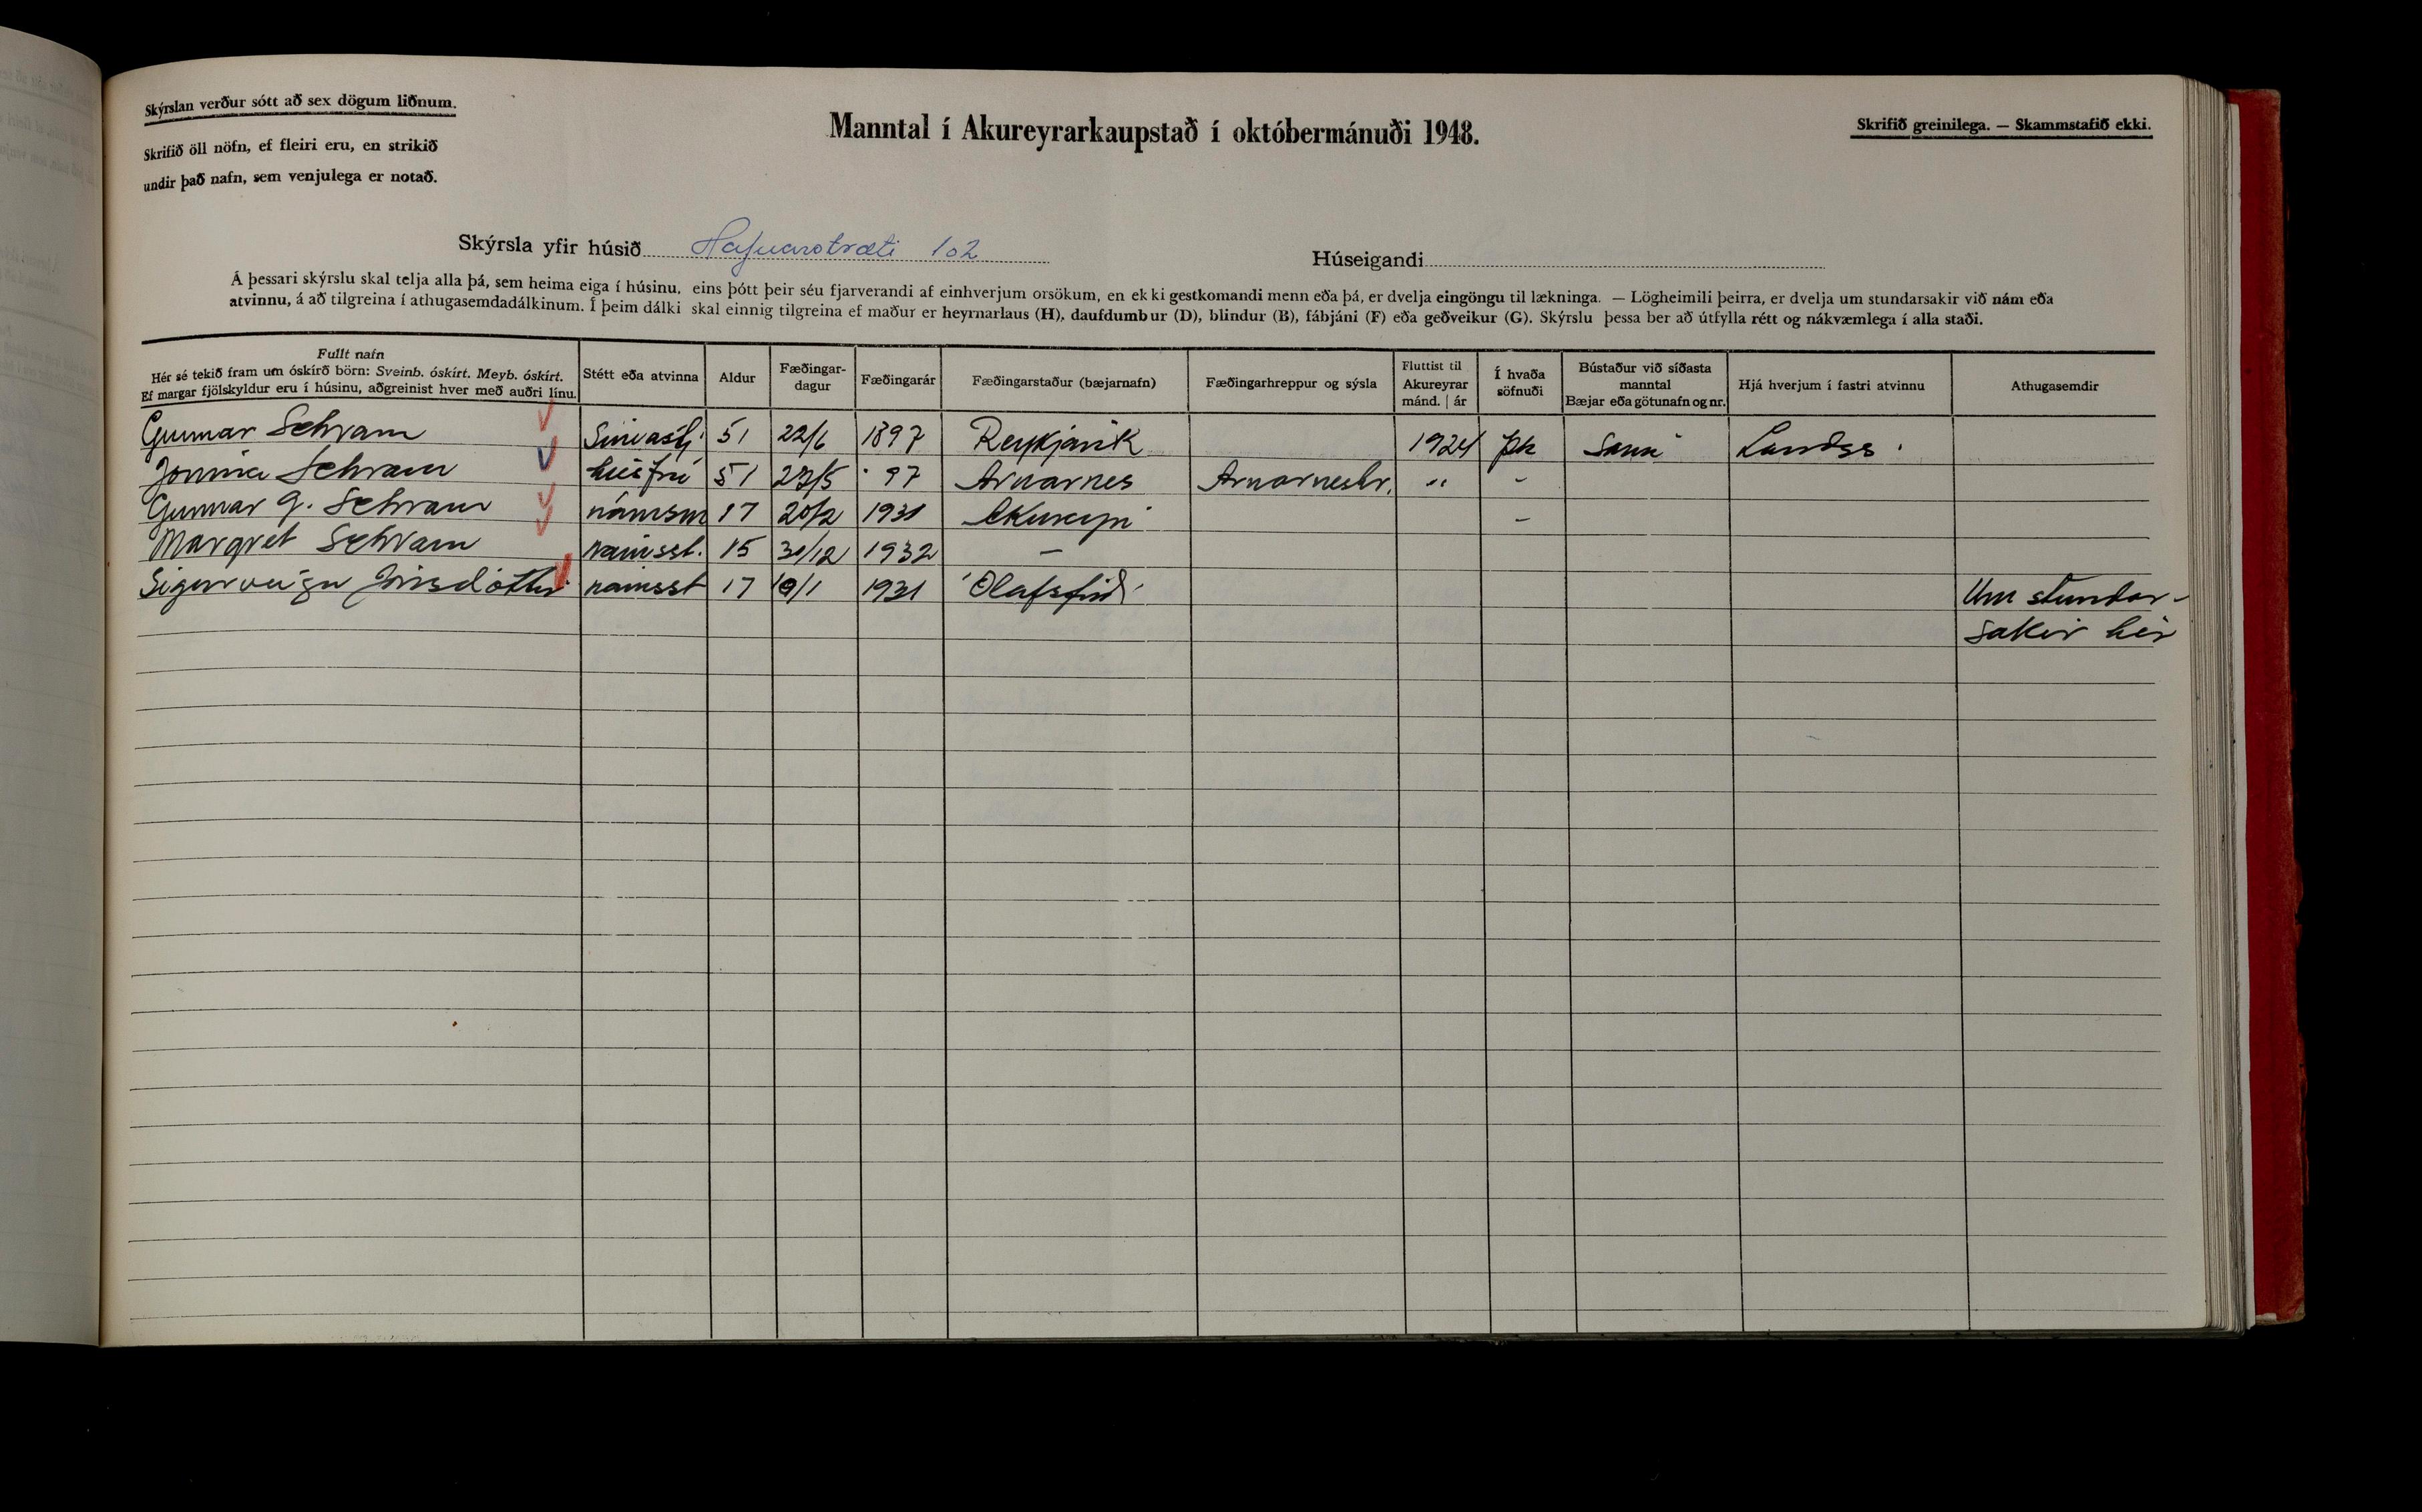 Skýrslan verður sótt að sex dögum liðnum.
Skrifið öll nöfn, ef fleiri eru, en strikið
undir það nafn, sem venjulega er notað.
Manntal í Akureyrarkaupstað í októbermánuði 1948.
Skrifið greinilega. — Skammstafið ekki.
Skýrsla yfir húsið Hafnarstræti 102
Húseigandi
Á þessari skýrslu skal telja alla þá, sem heima eiga í húsinu, eins þótt þeir séu fjarverandi af einhverjum orsökum, en ekki gestkomandi menn eða þá, er dvelja eingöngu til lækninga. — Lögheimili þeirra, er dvelja um stundarsakir við nám eða
atvinnu, á að tilgreina í athugasemdadálkinum. Í þeim dálki skal einnig tilgreina ef maður er heyrnarlaus (H), daufdumbur (D), blindur (B), fábjáni (F) eða geðveikur (G). Skýrslu þessa ber að útfylla rétt og nákvæmlega í alla staði.
Fullt nafn
Hér sé tekið fram um óskírð börn: Sveinb. óskírt. Meyb. óskírt.
Ef margar fjölskyldur eru í húsinu, aðgreinist hver með auðri línu.
Stétt eða atvinna
Aldur
Fæðingar-
dagur
Fæðingarár
Fæðingarstaður (bæjarnafn)
Fæðingarhreppur og sýsla
Fluttist til
Akureyrar
mánd. | ár
Í hvaða
söfnuði
Bústaður við síðasta
manntal
Bæjar eða götunafn og nr.
Hjá hverjum í fastri atvinnu
Athugasemdir
Gunnar Schram Símastj. 51 22/6 1897 Reykjavík 1924 þk Sami Landss.
Jonina Schram húsfrú 51 97 Arnarnes Arnarneshr. " -
Gunnar G. Schram námsm 17 20/2 1931 Akureyri -
Margret Schram námsst. 15 30/12 1932 —
Sigurveiga Jónsdóttir námsst 17 1931 Olafsfirði Um stundar-
sakir hér